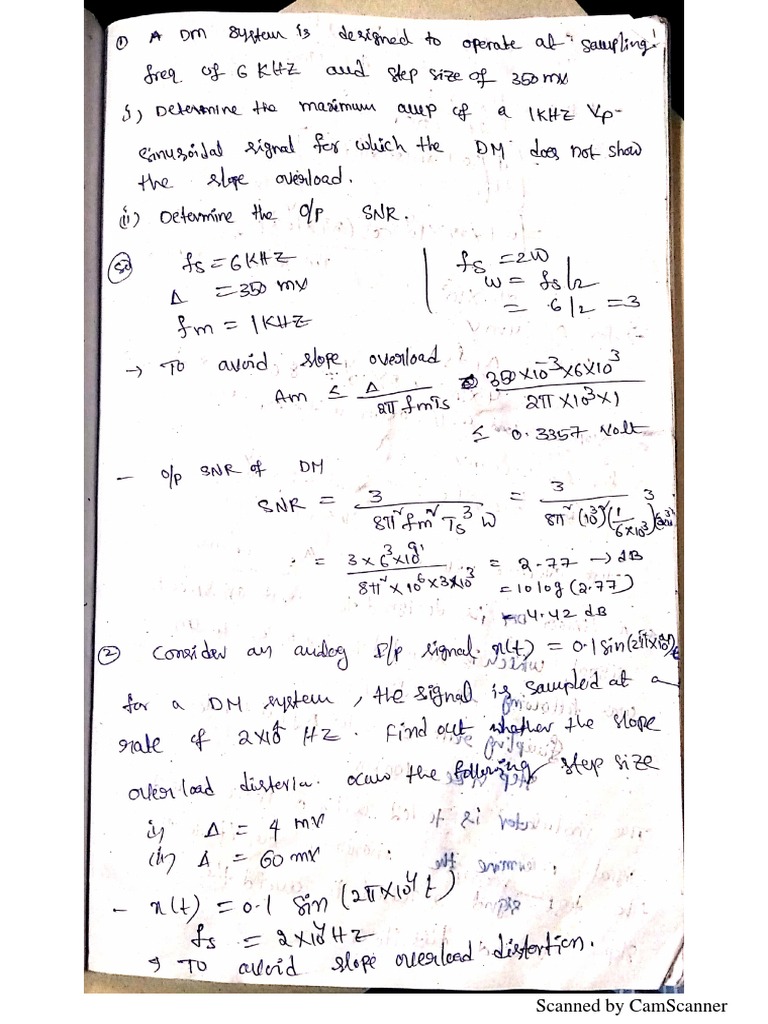 ① A DM system is designed to operate at sampling
freq of 6 KHZ and step size of 350 mv
i) Determine the maximum amp of a 1KHZ Vp-
sinusoidal signal for which the DM does not show
the slope overload.
(ii) Determine the o/p SNR.
Sol fs = 6KHZ
Δ = 350 mv
fm = 1KHZ
fs = 2W
W = fs/2
= 6/2 = 3
→ To avoid slope overload
Am ≤ Δ / 2π fmTs 350×10^-3×6×10^3 / 2π×10^3×1
≤ 0.3357 Volt
- o/p SNR of DM
SNR = 3 / 8π² fm² Ts³ W = 3 / 8π² (10³)² (1 / 6×10³)³
= 3×6³×10⁹ / 8π²×10⁶×3×10³ = 2.77 → dB
= 10 log (2.77)
= 4.42 dB
② Consider an analog I/p signal x(t) = 0.1 sin(2π×10⁴)t
for a DM system, the signal is sampled at a
rate of 2×10⁴ HZ. Find out whether the slope
overload distortn. occur the following step size
i) Δ = 4 mv
(ii) Δ = 60 mv
- x(t) = 0.1 sin (2π×10⁴ t)
fs = 2×10⁴HZ
→ To avoid slope overload distortion.
Scanned by CamScanner